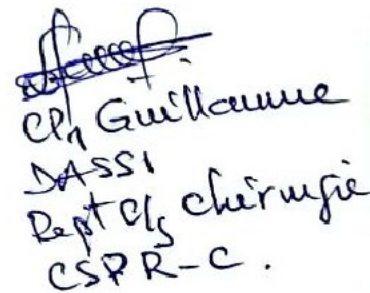 Guillaume
DASSI
Dept chirurgie
CSPR-C.